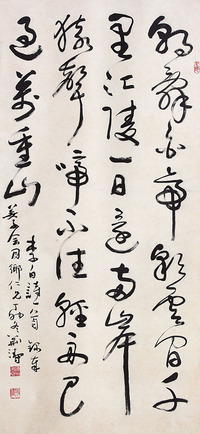 朝辭白帝彩雲間千
里江陵一日還兩岸
猿聲啼不住輕舟已
過萬重山
李白詩一首 錄奉
同鄉仁兄